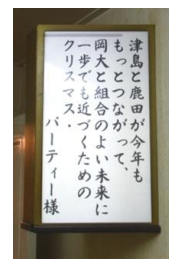 津島と鹿田が今年も
もっとつながって、
岡大と組合のよい未来に
一歩でも近づくための
クリスマス・
パーティー様